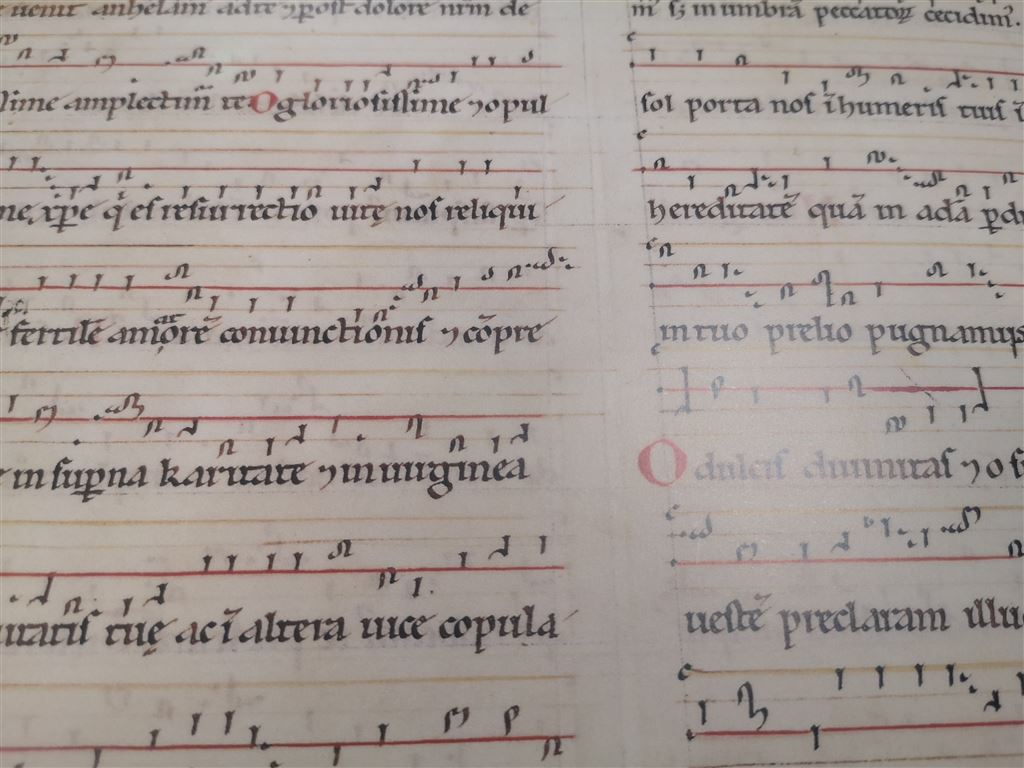 uenit anhelam adte ⁊ ꝑost dolorē nr̄m de
sime amplectim̄ te O gloriosissime ⁊ opul
ne, xp̄e q̇ es resurrectio uitę nos reliqui
fertilē amorē coniunctionis ⁊ cōpre
in suꝑna karitate ⁊ in uirginea
tuę ac ī altera uice copula
m̄ sꝫ in umbrā peccatoꝝ cecidim᷒.
sol porta nos ī humeris tuis ī
hereditatē quā in adā ꝑdi
in tuo prelio pugnamus
O dulcis diuinitas ⁊ o s
uestē preclaram illu